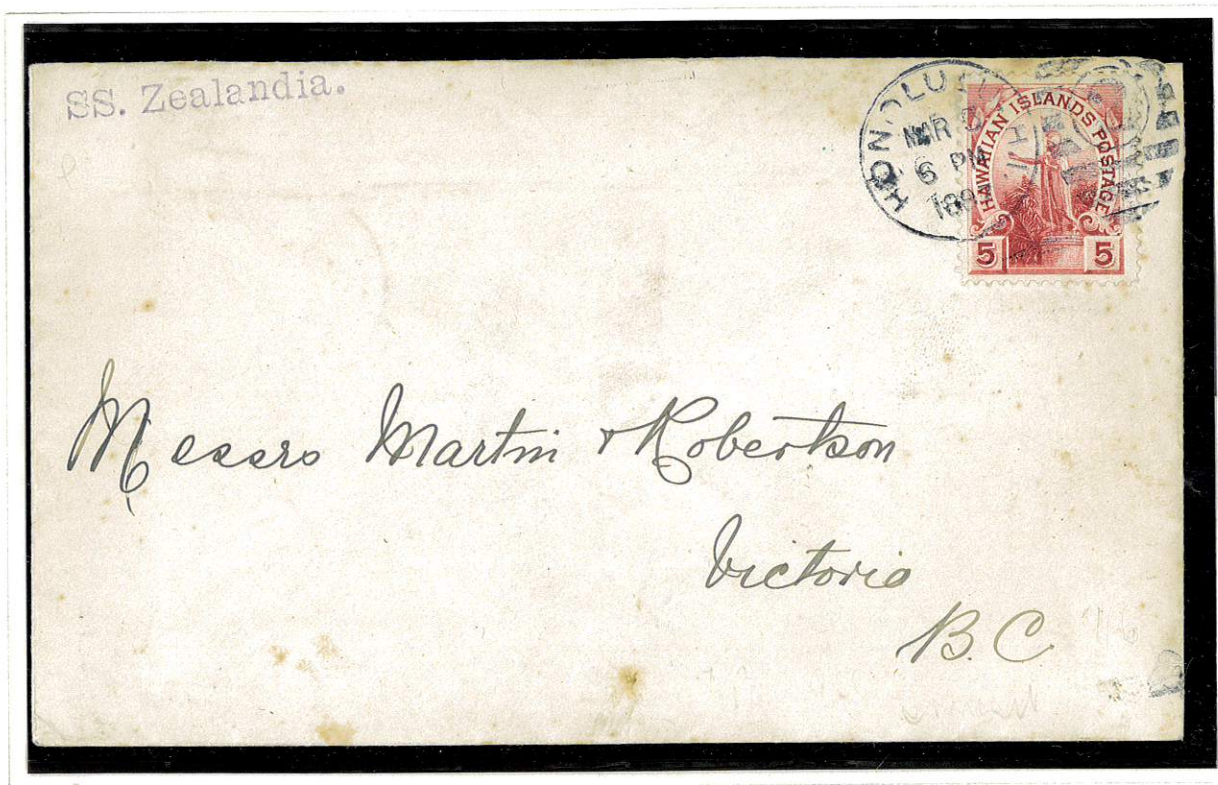 SS. Zealandia.
HONOLULU H.I.
MAR
6 PM
189
HAWAIIAN ISLANDS POSTAGE
5 5
Messrs Martin & Robertson
Victoria
B.C.